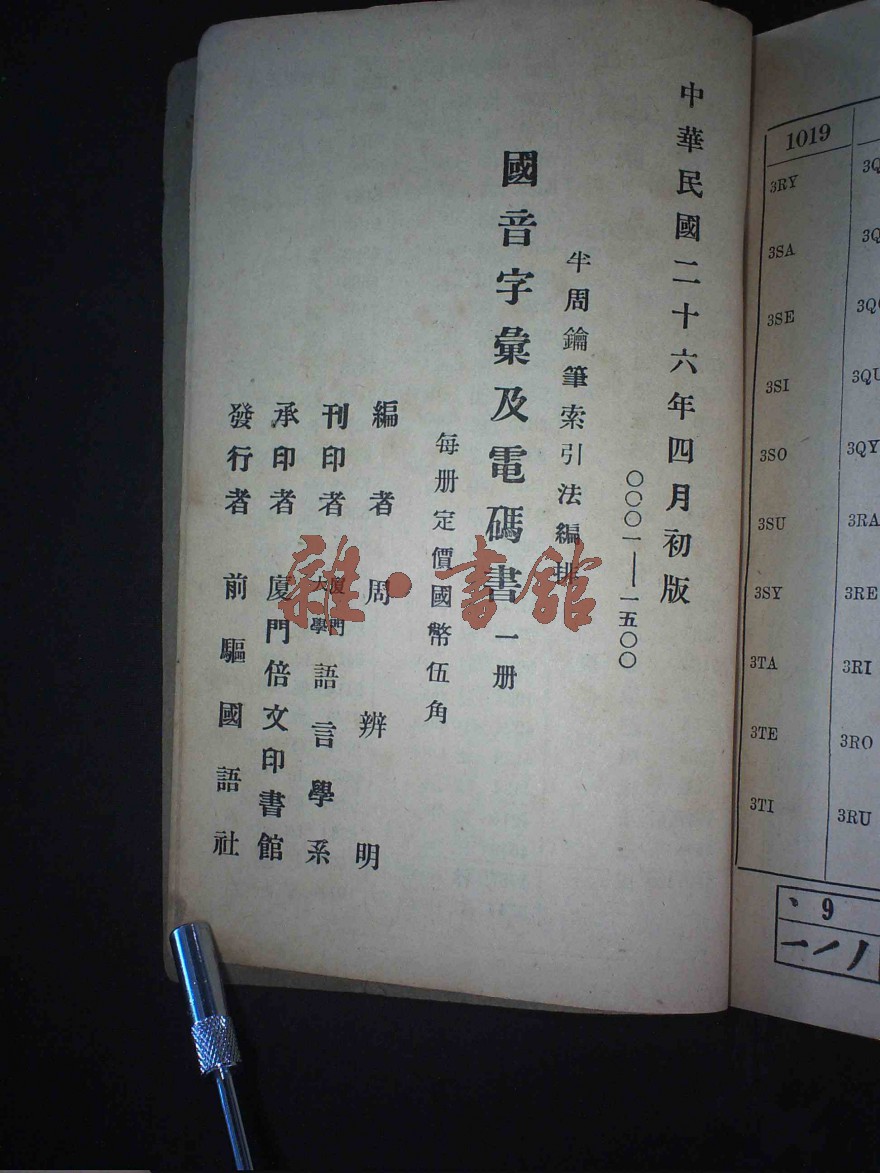 中華民國二十六年四月初版
〇〇〇一——一五〇〇
半周鑰筆索引法編排
國音字彙及電碼書一册
每册定價國幣伍角
編者 周辨明
刊印者 廈門大學語言學系
承印者 廈門倍文印書館
發行者 前驅國語社
雜·書館
1019
3RY
3SA
3SE
3SI
3SO
3SU
3SY
3TA
3TE
3TI
3QY
3RA
3RE
3RI
3RO
3RU
丶 9